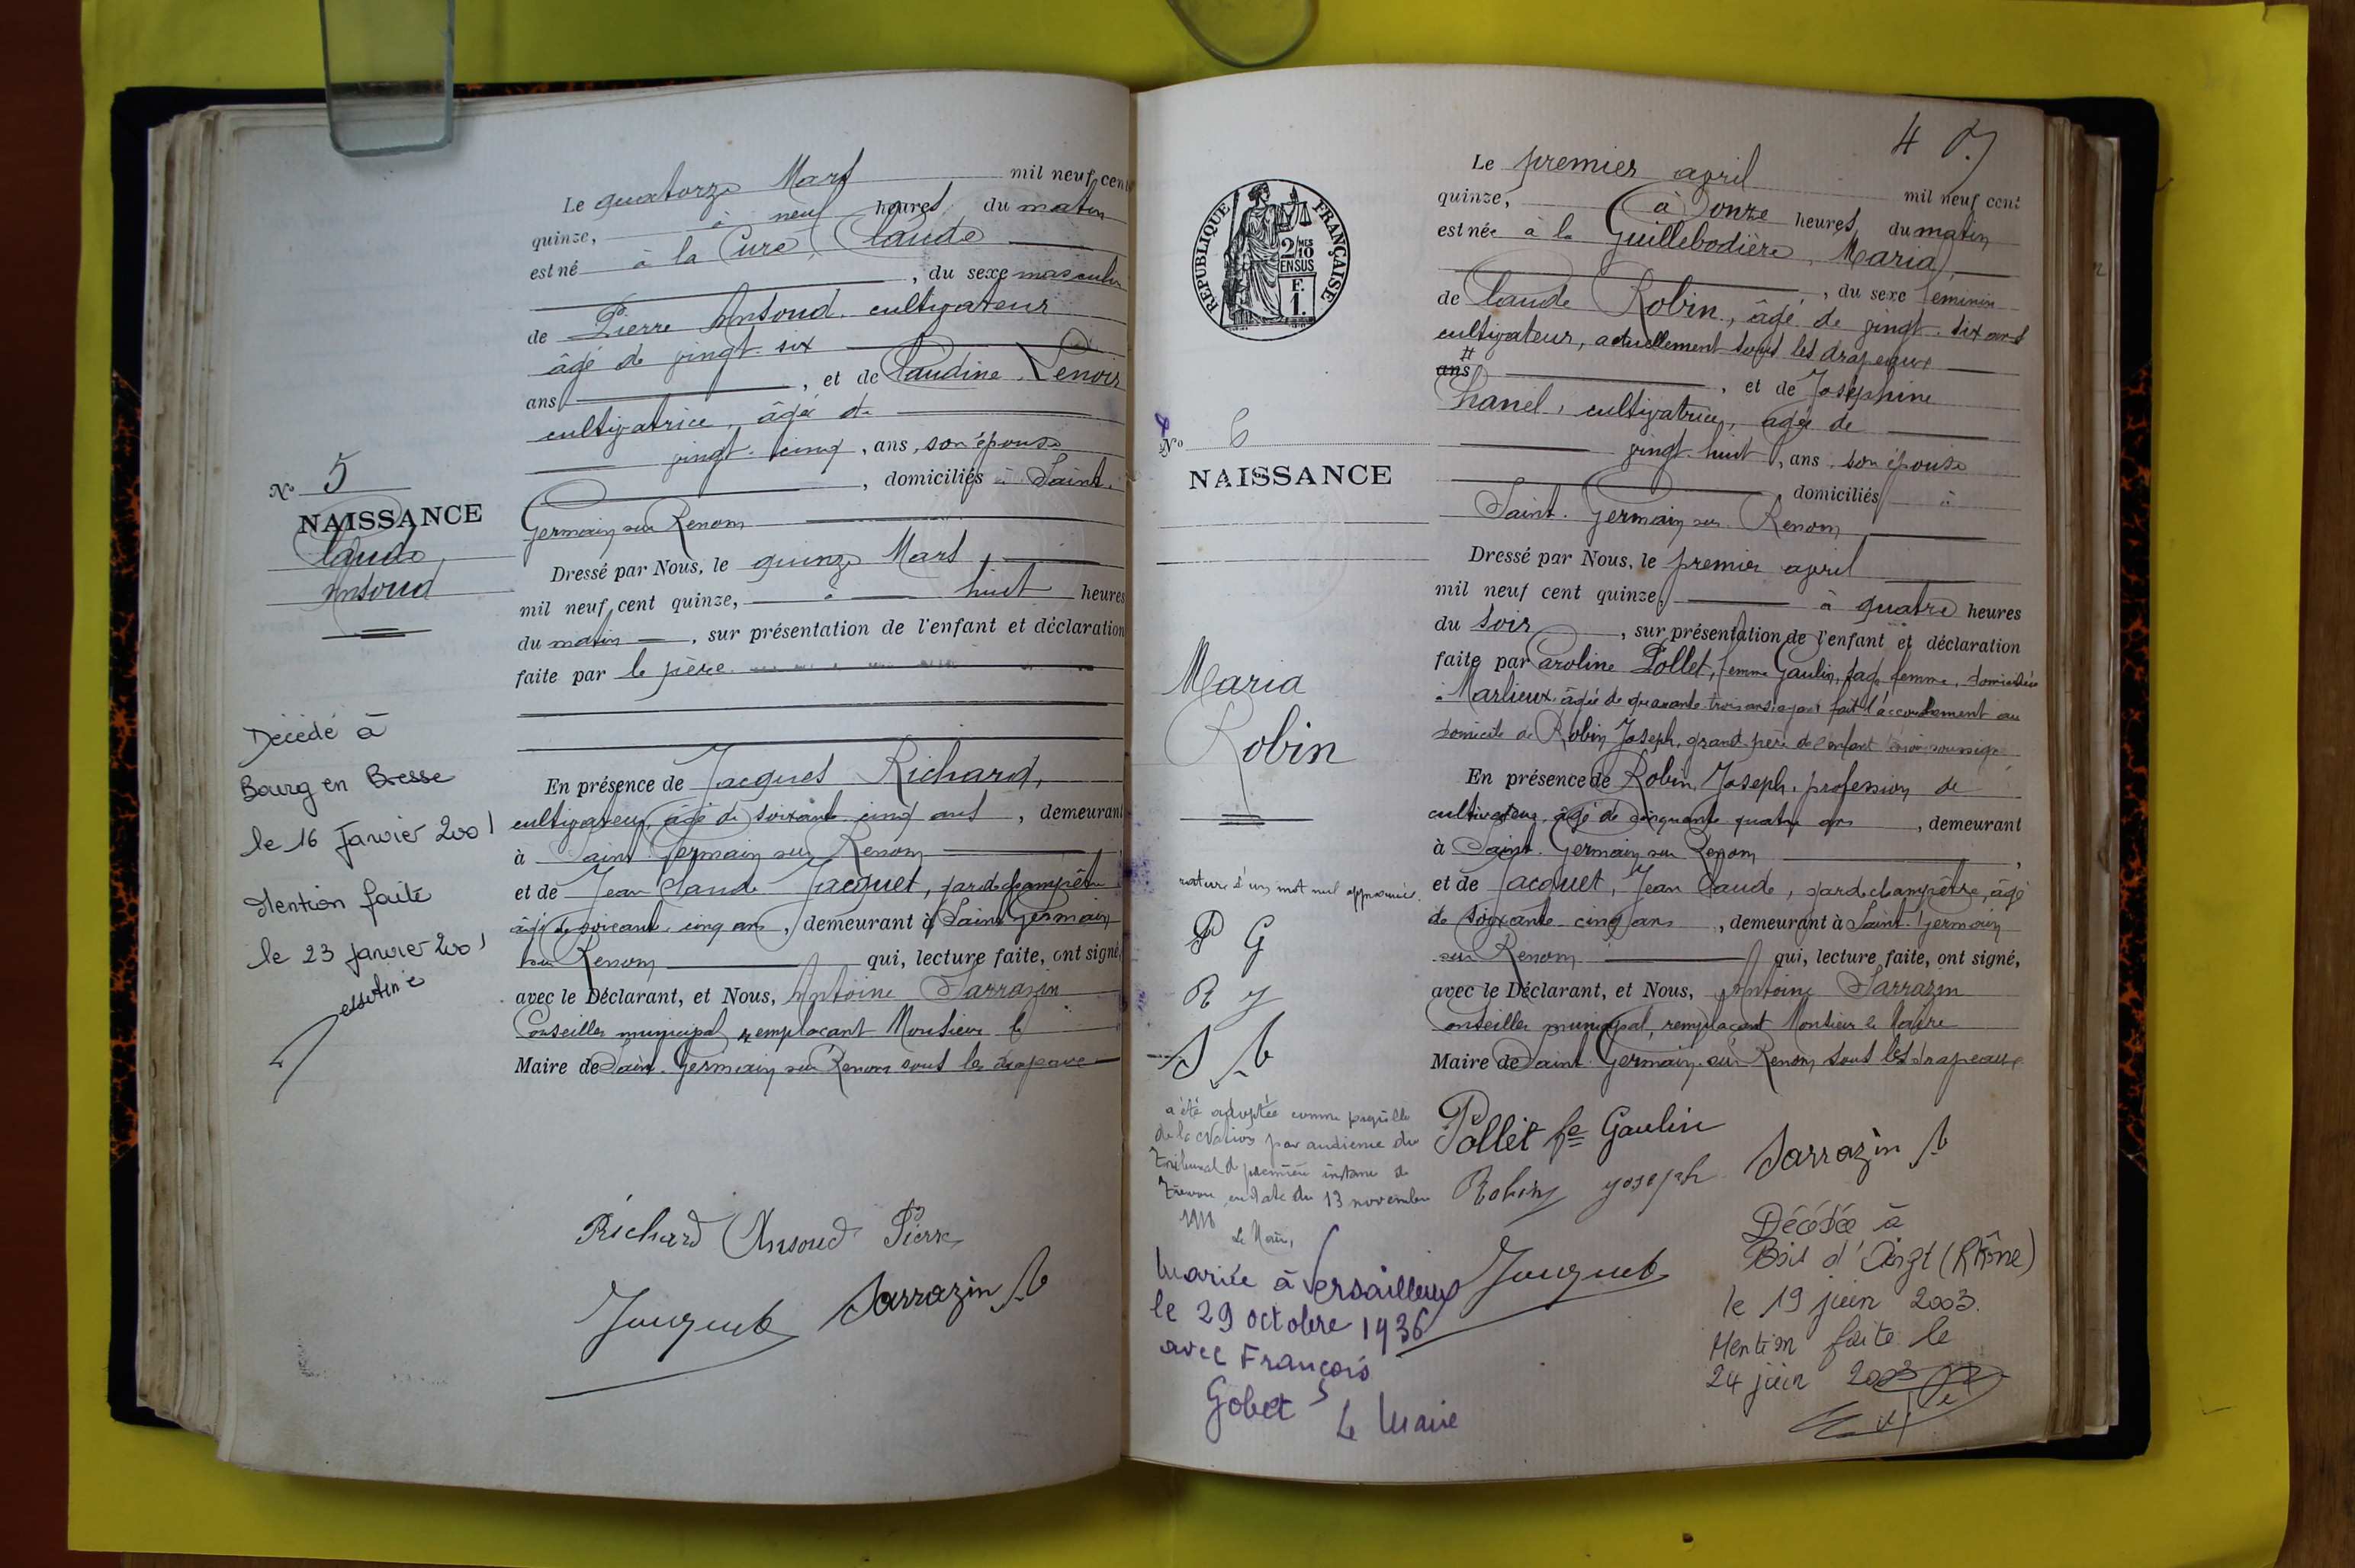 Le quatorze Mars mil neuf cent
quinze, à neuf heures du matin
est né à la Cure, Claude
, du sexe masculin
de Pierre Ansoud, cultivateur
âgé de vingt-six
ans, et de Claudine Lenoir
cultivatrice, âgée de
vingt-cinq, ans, son épouse
, domiciliés à Saint-
Germain sur Renom
Dressé par Nous, le quinze Mars,
mil neuf cent quinze, à huit heures
du matin, sur présentation de l'enfant et déclaration
faite par le père
En présence de Jacques Richard,
cultivateur, âgé de soixante cinq ans, demeurant
à Saint Germain sur Renom
et de Jean Claude Jacquet, garde champêtre
âgé de soixante cinq ans, demeurant à Saint Germain
sur Renom qui, lecture faite, ont signé
avec le Déclarant, et Nous, Antoine Sarrazin
Conseiller municipal remplaçant Monsieur le
Maire de Saint-Germain sur Renom sous les drapeaux
Richard Ansoud Pierre
Jacquet Sarrazin A
No 5
NAISSANCE
Claude
Ansoud
Décédé à
Bourg en Bresse
le 16 Janvier 2001
Mention faite
le 23 janvier 2001
4
Le premier avril mil neuf cent
quinze, à onze heures du matin
est née à la Guillebodière, Maria,
, du sexe féminin
de Claude Robin, âgé de vingt-six ans
cultivateur, actuellement sous les drapeaux
ans, et de Joséphine
Chanel, cultivatrice, âgée de
vingt-huit, ans, son épouse
domiciliés à
Saint-Germain sur Renom
Dressé par Nous, le premier avril
mil neuf cent quinze, à quatre heures
du soir, sur présentation de l'enfant et déclaration
faite par Caroline Pollet, femme Gaulin, sage femme, domiciliée
à Marlieux, âgée de quarante trois ans, ayant fait l'accouchement au
domicile de Robin Joseph, grand-père de l'enfant
En présence de Robin, Joseph, profession de
cultivateur, âgé de cinquante quatre ans, demeurant
à Saint-Germain sur Renom,
et de Jacquet, Jean Claude, garde champêtre, âgé
de soixante-cinq ans, demeurant à Saint-Germain
sur Renom qui, lecture faite, ont signé,
avec le Déclarant, et Nous, Antoine Sarrazin
Conseiller municipal, remplaçant Monsieur le Maire
Maire de Saint-Germain-sur Renom sous les drapeaux
Pollet fe Gaulin
Robin Joseph Sarrazin A
Jacquet
RÉPUBLIQUE FRANÇAISE
2/10 MES
EN SUS
F.
1.
No 6
NAISSANCE
Maria
Robin
rature d'un mot nul approuvée.
P G
R J
J
S A
a été adoptée comme pupille
de la Nation par audience du
Tribunal de première instance de
Trévoux en date du 13 novembre
Le Maire,
Mariée à Versailleux
le 29 octobre 1936
avec François
Gobet
Le Maire
Décédée à
Bois d'Oingt (Rhône)
le 19 juin 2003.
Mention faite le
24 juin 2003